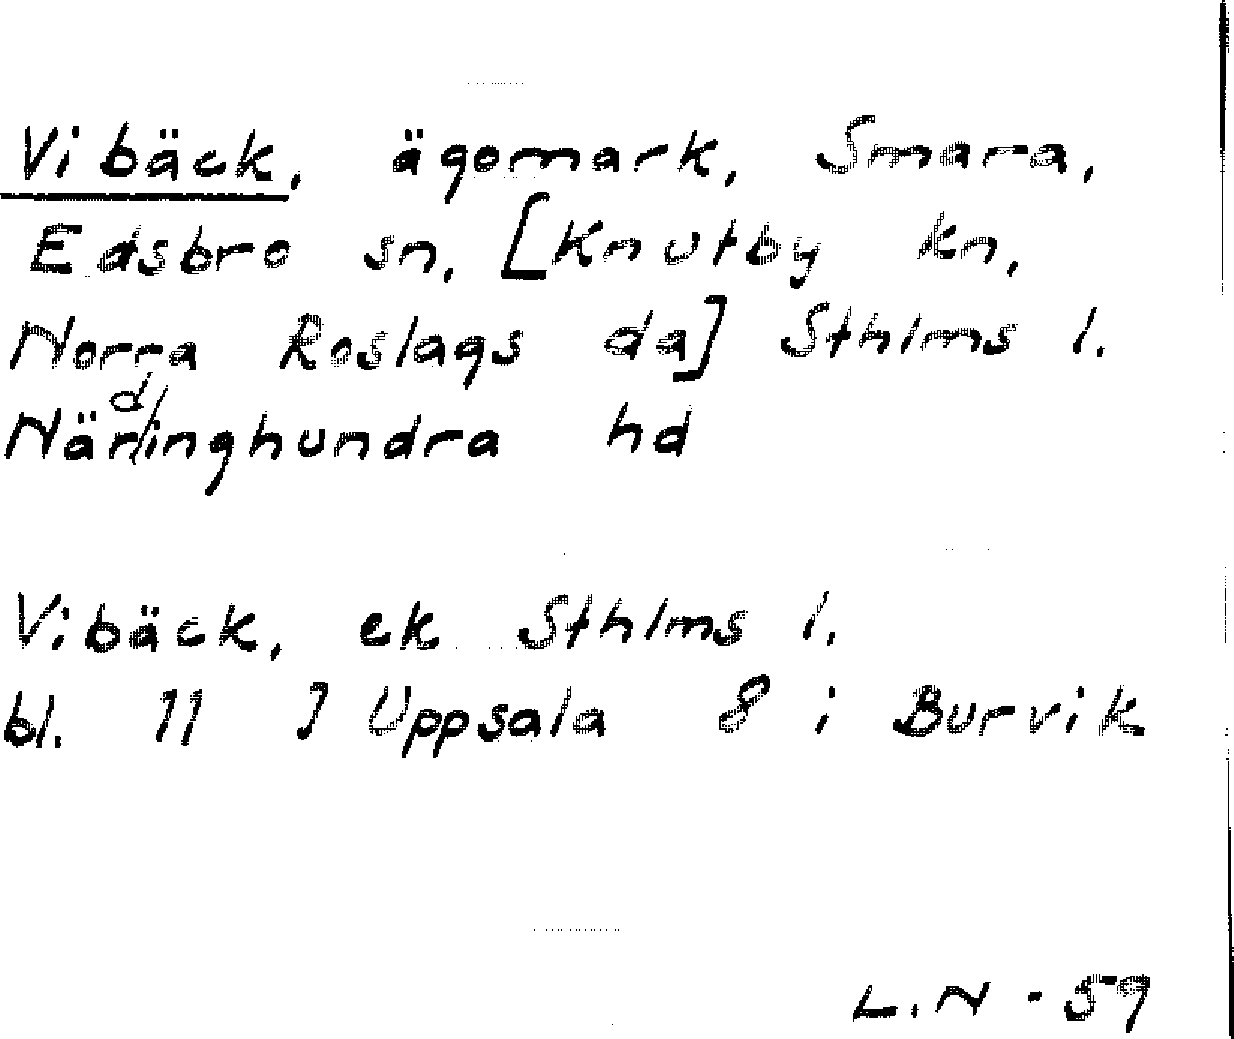 Vibäck, ägomark, Smara,
Edsbro sn, [Knutby kn,
Norra Roslags da] Sthlms l.
Närdinghundra hd
Vibäck, ek Sthlms l.
bl. 11 J Uppsala 8 i Burvik
L.N - 59